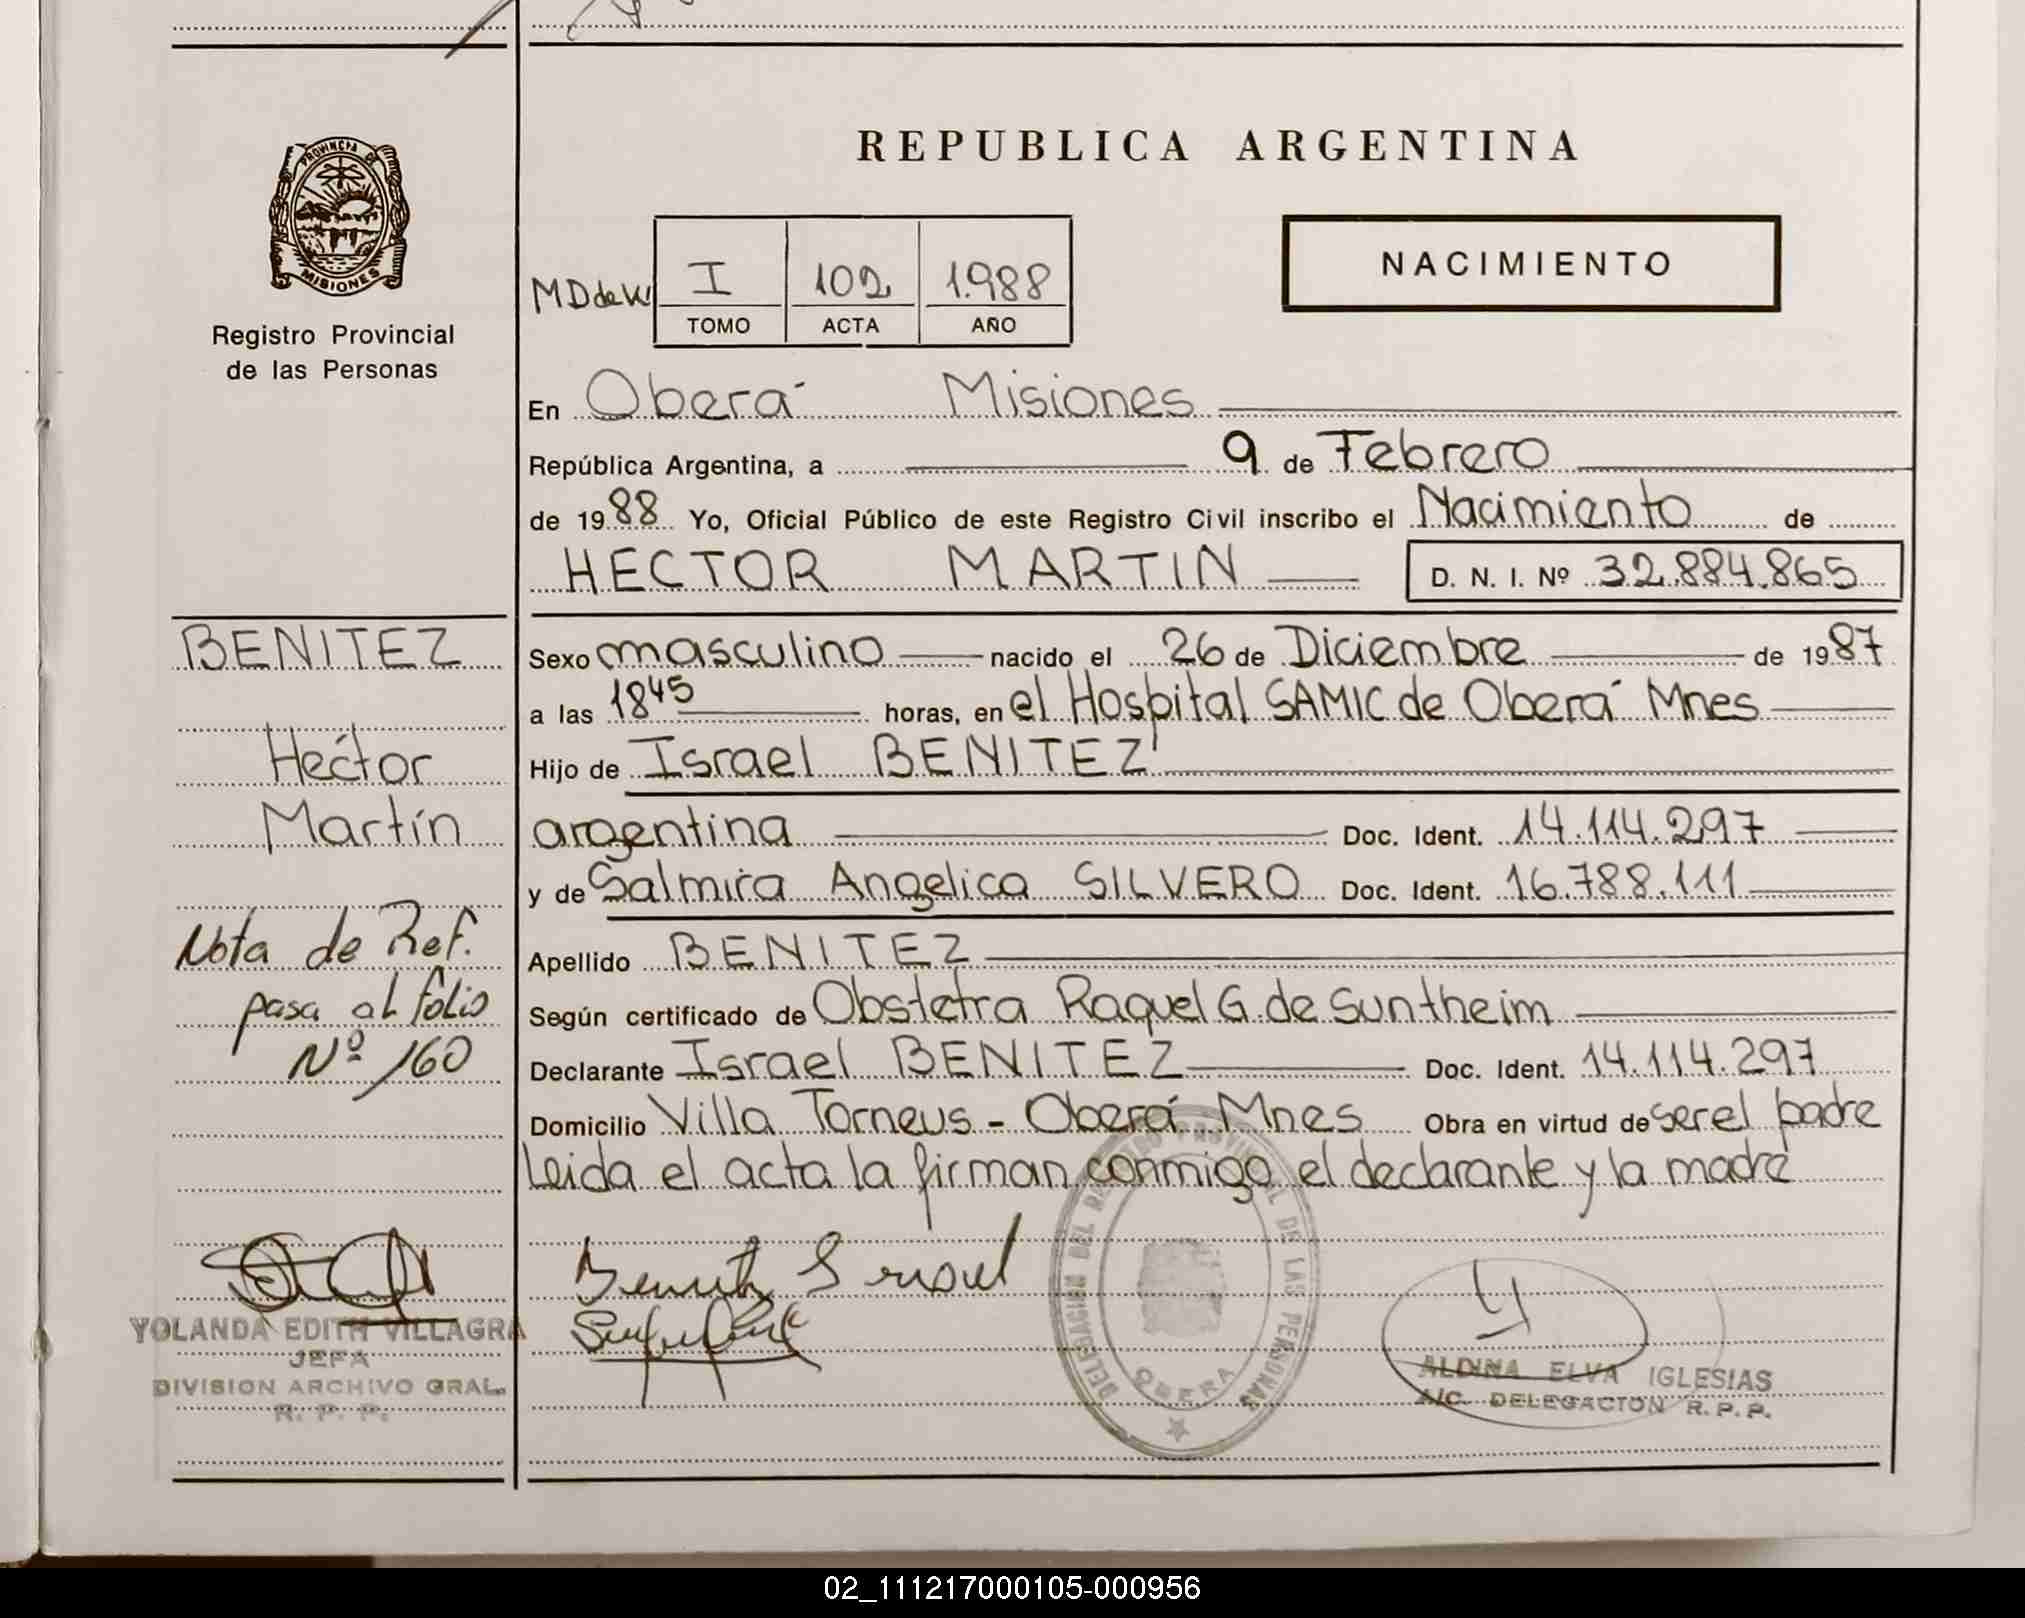 PROVINCIA DE
MISIONES
Registro Provincial
de las Personas
REPUBLICA ARGENTINA
NACIMIENTO
I 102 1.988
TOMO ACTA AÑO
En Oberá Misiones
República Argentina, a 9 de Febrero
de 1988 Yo, Oficial Público de este Registro Civil inscribo el Nacimiento de
HECTOR MARTIN D. N. I. Nº 32.884.865
BENITEZ
Héctor
Martín
Nota de Ref.
pasa al folio
Nº 160
Sexo masculino nacido el 26 de Diciembre de 1987
a las 1845 horas, en el Hospital SAMIC de Oberá Mnes
Hijo de Israel BENITEZ
argentina Doc. Ident. 14.114.297
y de Salmira Angelica SILVERO Doc. Ident. 16.788.111
Apellido BENITEZ
Según certificado de Obstetra Raquel G. de Suntheim
Declarante Israel BENITEZ Doc. Ident. 14.114.297
Domicilio Villa Torneus - Oberá Mnes Obra en virtud de ser el padre
Leida el acta la firman conmigo el declarante y la madre
Benitez Israel
DELEGACION DEL REGISTRO PROVINCIAL DE LAS PERSONAS
OBERA
YOLANDA EDITH VILLAGRA
JEFA
DIVISION ARCHIVO GRAL.
R. P. P.
ALDINA ELVA IGLESIAS
A/C. DELEGACION R. P. P.
02_111217000105-000956